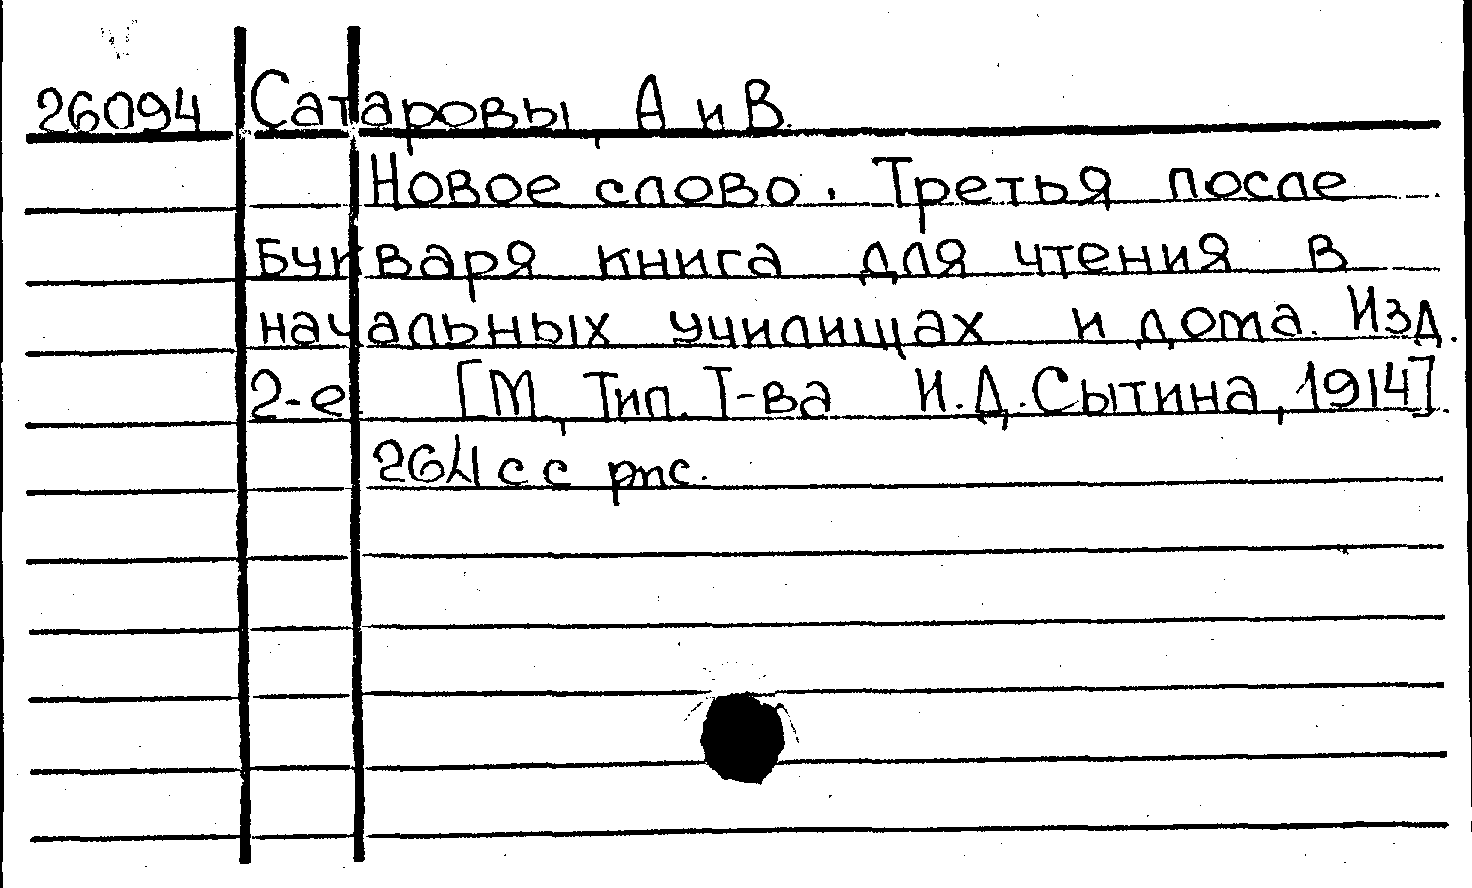 26094 Сатаровы, А и В.
Новое слово. Третья после
Букваря книга для чтения в
начальных училищах и дома. Изд.
2-е [М., Тип. Т-ва И.Д.Сытина, 1914].
264 с с рис.